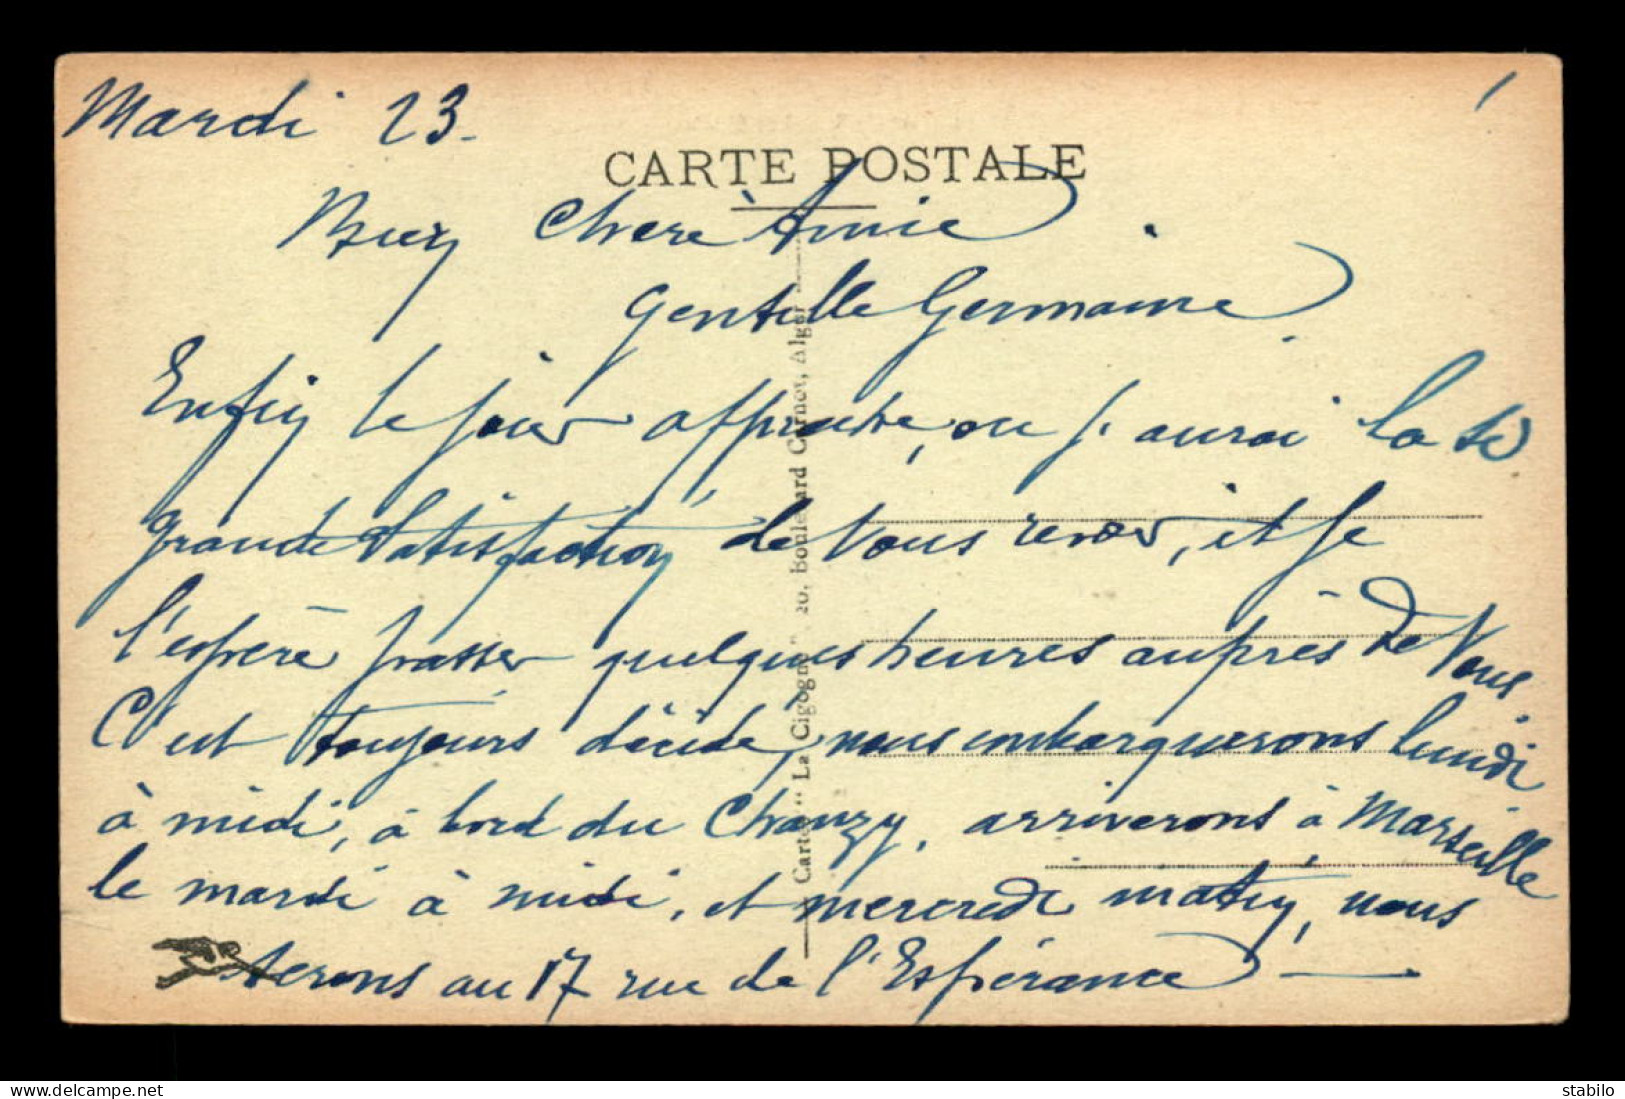 Mardi 23.
CARTE POSTALE
Bien Chère Amie
Gentille Germaine
Enfin le jour approche, ou j'aurai la si
grande Satisfaction de Vous revoir, et je
l'espère passer quelques heures auprès de Vous.
C'est toujours décidé, nous embarquerons lundi
à midi, à bord du Chanzy, arriverons à Marseille
le mardi à midi, et mercredi matin, nous
serons au 17 rue de l'Espérance
Cartes "La Cigogne", 20, Boulevard Carnot, Alger
delcampe.net
stabilo